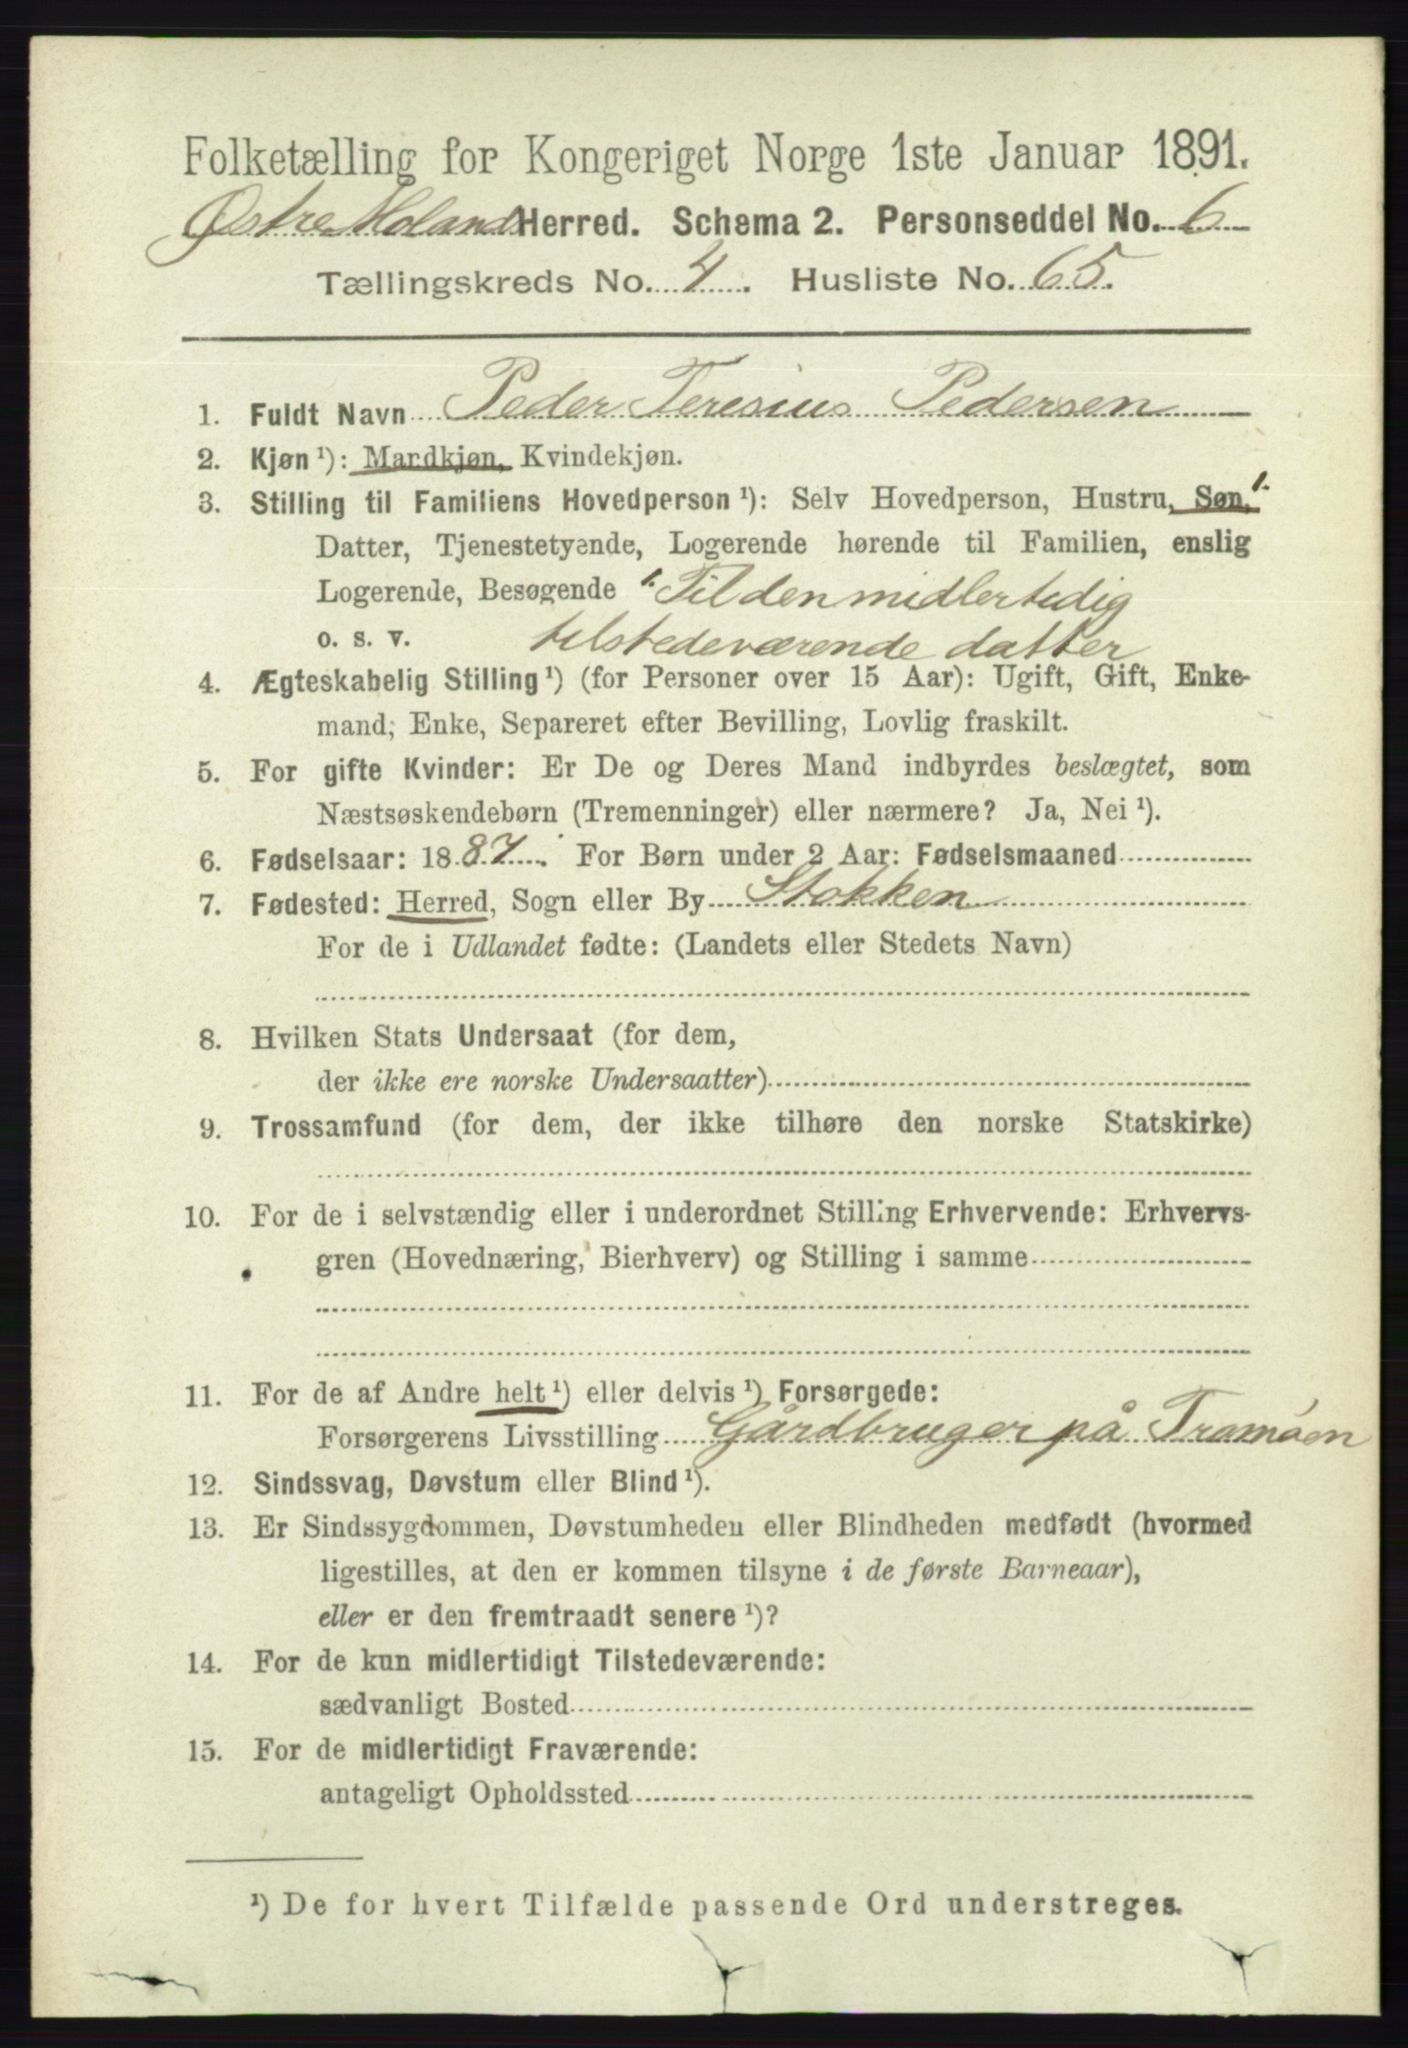 Folketælling for Kongeriget Norge 1ste Januar 1891.
Østre Moland Herred. Schema 2. Personseddel No. 6
Tællingskreds No. 4. Husliste No. 65.
1. Fuldt Navn Peder Teresius Pedersen
2. Kjøn ¹): Mandkjøn, Kvindekjøn.
3. Stilling til Familiens Hovedperson ¹): Selv Hovedperson, Hustru, Søn, 1.
Datter, Tjenestetyende, Logerende hørende til Familien, enslig
Logerende, Besøgende 1. Til den midlertedig
o. s. v. tilstedeværende datter
4. Ægteskabelig Stilling ¹) (for Personer over 15 Aar): Ugift, Gift, Enke-
mand, Enke, Separeret efter Bevilling, Lovlig fraskilt.
5. For gifte Kvinder: Er De og Deres Mand indbyrdes beslægtet, som
Næstsøskendebørn (Tremenninger) eller nærmere? Ja, Nei ¹).
6. Fødselsaar: 1887. For Børn under 2 Aar: Fødselsmaaned
7. Fødested: Herred, Sogn eller By Stokken
For de i Udlandet fødte: (Landets eller Stedets Navn)
8. Hvilken Stats Undersaat (for dem,
der ikke ere norske Undersaatter)
9. Trossamfund (for dem, der ikke tilhøre den norske Statskirke)
10. For de i selvstændig eller i underordnet Stilling Erhvervende: Erhvervs-
gren (Hovednæring, Bierhverv) og Stilling i samme
11. For de af Andre helt ¹) eller delvis ¹) Forsørgede:
Forsørgerens Livsstilling Gårdbruger på Tromøen
12. Sindssvag, Døvstum eller Blind ¹).
13. Er Sindssygdommen, Døvstumheden eller Blindheden medfødt (hvormed
ligestilles, at den er kommen tilsyne i de første Barneaar),
eller er den fremtraadt senere ¹)?
14. For de kun midlertidigt Tilstedeværende:
sædvanligt Bosted
15. For de midlertidigt Fraværende:
antageligt Opholdssted
¹) De for hvert Tilfælde passende Ord understreges.